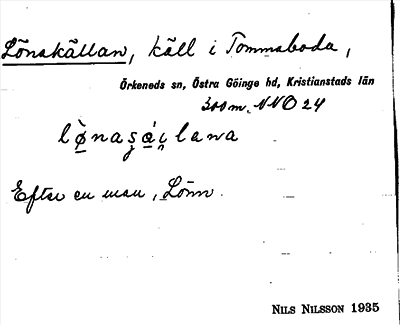 Lönskällan, käll i Tommaboda,
Örkeneds sn, Östra Göinge hd, Kristianstads län
300 m. NNO 24
Efter en man, Lönn.
NILS NILSSON 1935